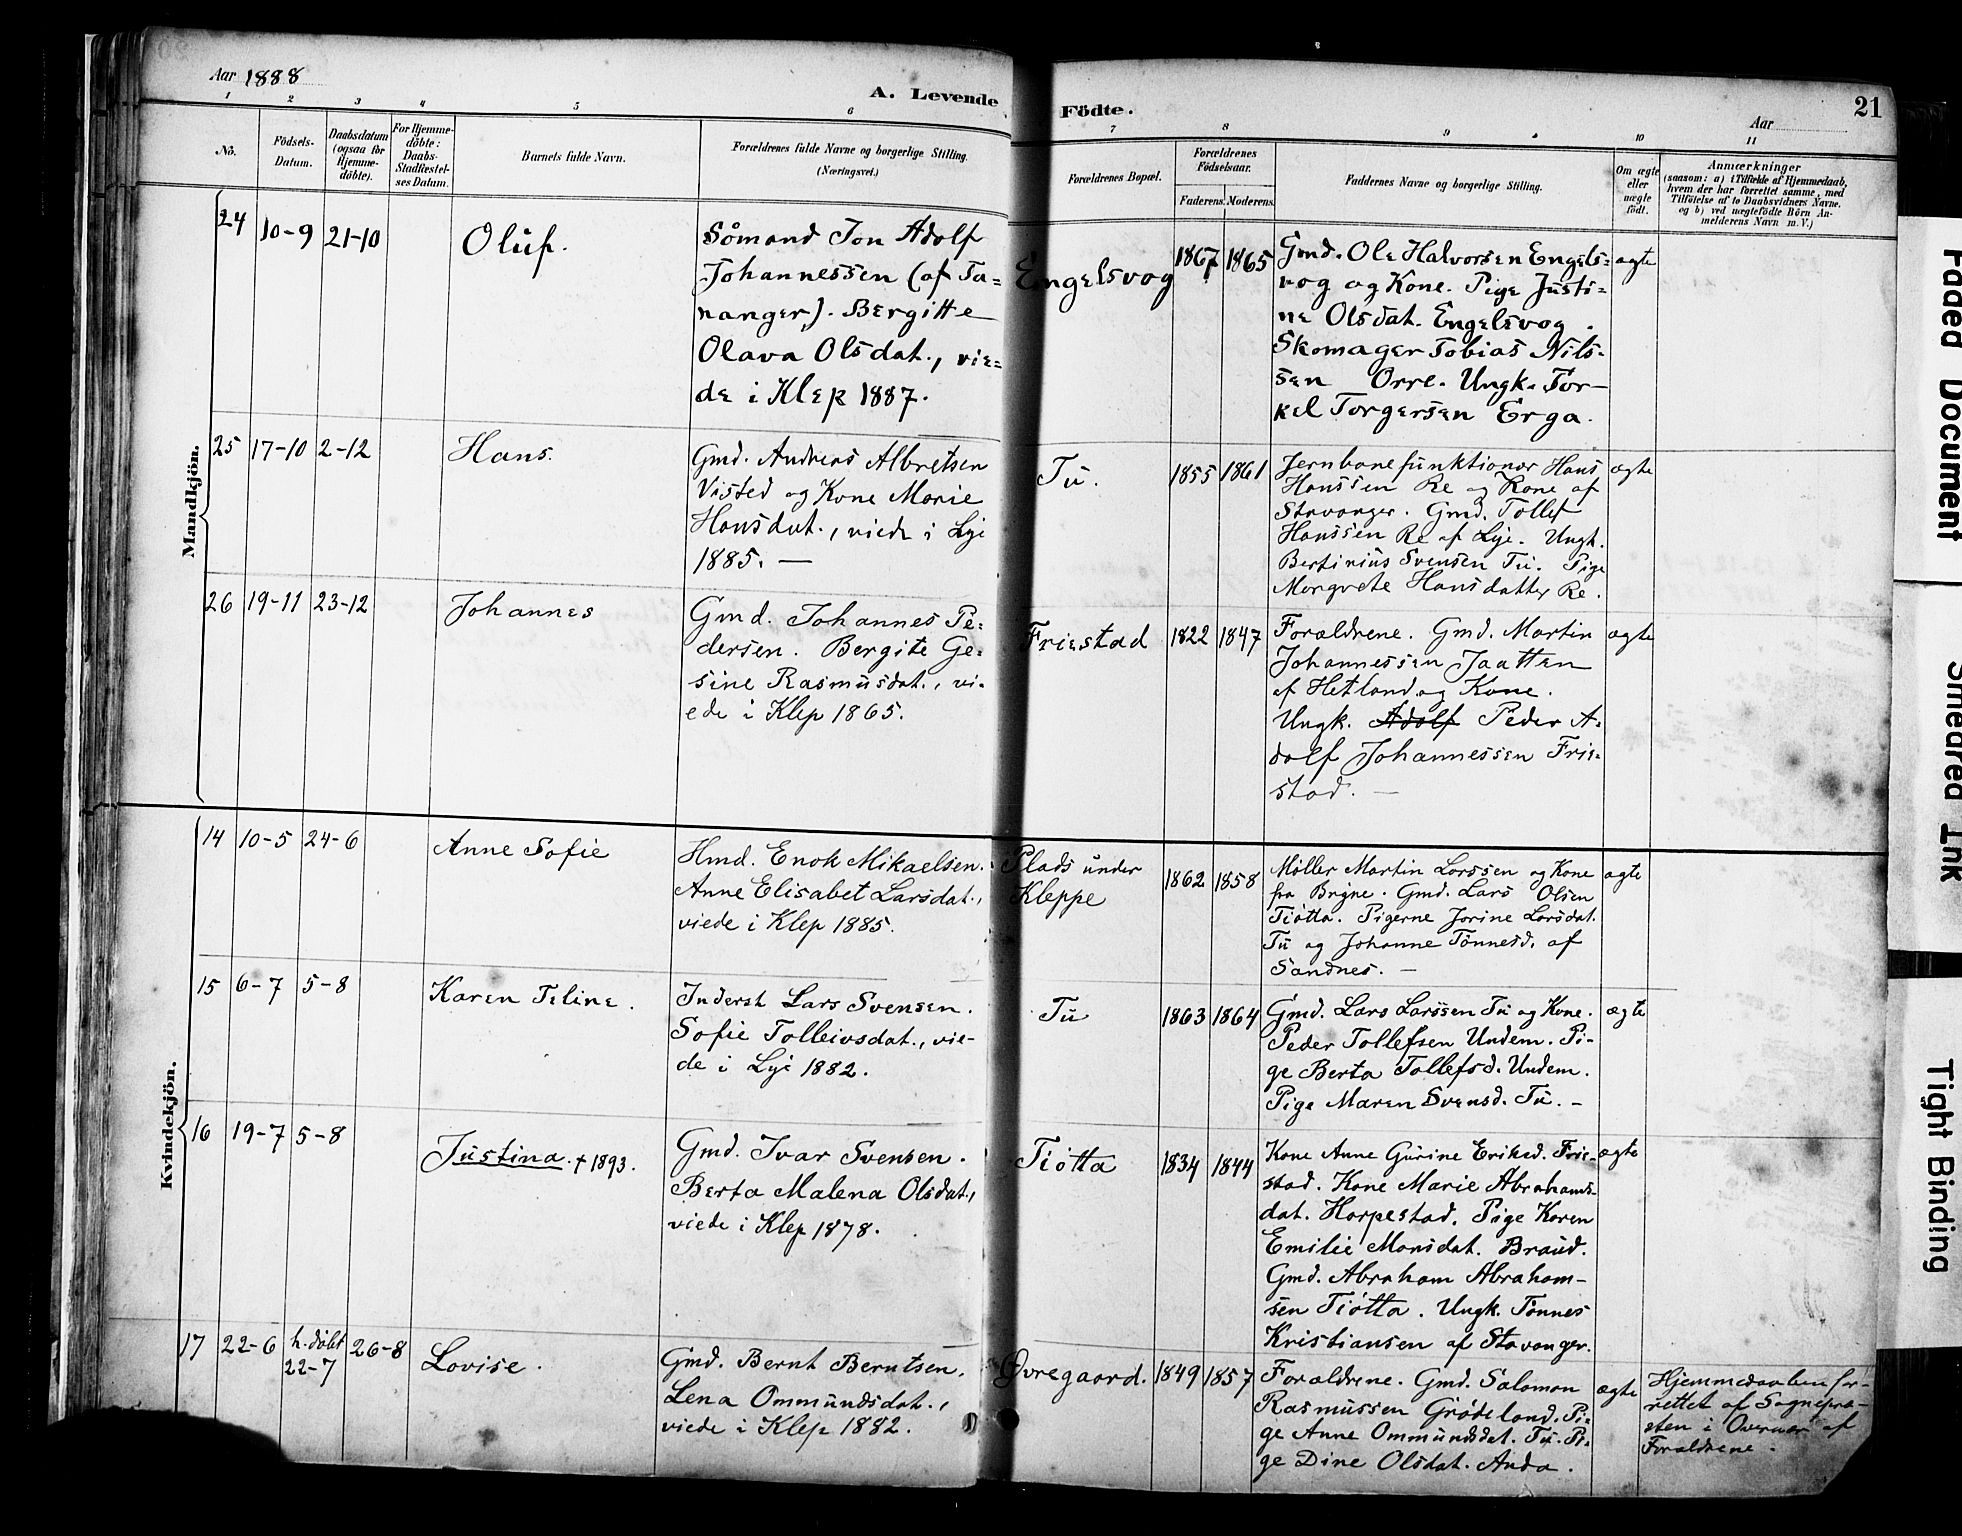 Aar 1888
A. Levende
Födte.
Aar
21
1 2 3 4 5 6 7 8 9 10 11
No.
Födsels-
Datum.
Daabsdatum
(ogsaa for
Hjemme-
döbte).
For Hjemme-
döbte:
Daabs-
Stadfæstel-
ses Datum.
Barnets fulde Navn.
Forældrenes fulde Navne og borgerlige Stilling.
(Næringsvei.)
Forældrenes Bopæl.
Forældrenes
Födselsaar.
Faderens. Moderens.
Faddernes Navne og borgerlige Stilling.
Om ægte
eller
uægte
födt.
Anmærkninger
(saasom: a) i Tilfælde af Hjemmedaab,
hvem der har forrettet samme, med
Tilföielse af to Daabsvidners Navne.
og b) ved uægtefödte Börn An-
melderens Navn m. V.)
Mandkjön.
24 10-9 21-10 Oluf.
Sömand Jon Adolf
Johannessen (af Ta=
nanger). Bergitte
Olava Olsdat., vie=
de i Klep 1887.
Engelsvog 1867 1865
Gmd. Ole Halvorsen Engels=
vog og Kone. Pige Justi=
ne Olsdat. Engelsvog.
Skomager Tobias Nils-
sen Orre. Ungk. Tor-
kel Torgersen Erga.
ægte
25 17-10 2-12 Hans.
Gmd. Andreas Albretsen
Visted og Kone Marie
Hansdat., viede i Lye
1885. —
Tu. 1855 1861
Jernbanefunktionær Hans
Hanssen Re og Kone af
Stavanger. Gmd. Tollef
Hanssen Re af Lye. Ungk.
Bertinius Svensen Tu. Pige
Margrete Hansdatter Re.
ægte
26 19-11 23-12 Johannes
Gmd. Johannes Pe=
dersen. Bergite Ge=
sine Rasmusdat., vi-
ede i Klep 1865.
Friestad 1822 1847
Forældrene. Gmd. Martin
Johannessen Jaatten
af Hetland og Kone.
Ungk. Adolf Peder A-
dolf Johannessen Frie-
stad. —
ægte
Kvindekjön.
14 10-5 24-6 Anne Sofie
Hmd. Enok Mikaelsen.
Anne Elisabet Larsdat.,
viede i Klep 1885.
Plads under
Kleppe
1862 1858
Møller Martin Larssen og Kone
fra Bryne. Gmd. Lars Olsen
Tiötta. Pigerne Jorine Larsdat.
Tu og Johanne Tönnesd. af
Sandnes. —
ægte
15 6-7 5-8 Karen Teline.
Inderst Lars Svensen.
Sofie Tolleivsdat., vie-
de i Lye 1882.
Tu 1863 1864
Gmd. Lars Larssen Tu og Kone.
Peder Tollefsen Undem. Pi-
ge Berta Tollefsd. Undem.
Pige Maren Svensd. Tu. -
ægte
16 19-7 5-8 Justina. † 1893.
Gmd. Ivar Svensen.
Berta Malena Olsdat.,
viede i Klep 1878.
Tiötta 1834 1844
Kone Anne Gurine Eriksd. Frie-
stad. Kone Marie Abrahams-
dat. Horpestad. Pige Karen
Emilie Monsdat. Braud.
Gmd. Abraham Abraham-
sen Tiötta. Ungk. Tönnes
Kristiansen af Stavanger.
ægte
17 22-6 h.döbt
22-7
26-8 Lovise.
Gmd. Bernt Berntsen.
Lena Ommundsdat.,
viede i Klep 1882.
Øvregaard. 1849 1857
Forældrene. Gmd. Salomon
Rasmussen Grödeland. Pi-
ge Anne Ommundsdat. Tu. Pi-
ge Dine Olsdat. Anda.
ægte
Hjemmedaaben for-
rettet af Sognepræ-
sten i Overvær af
Forældrene.
Faded Document
Smeared Ink
Tight Binding